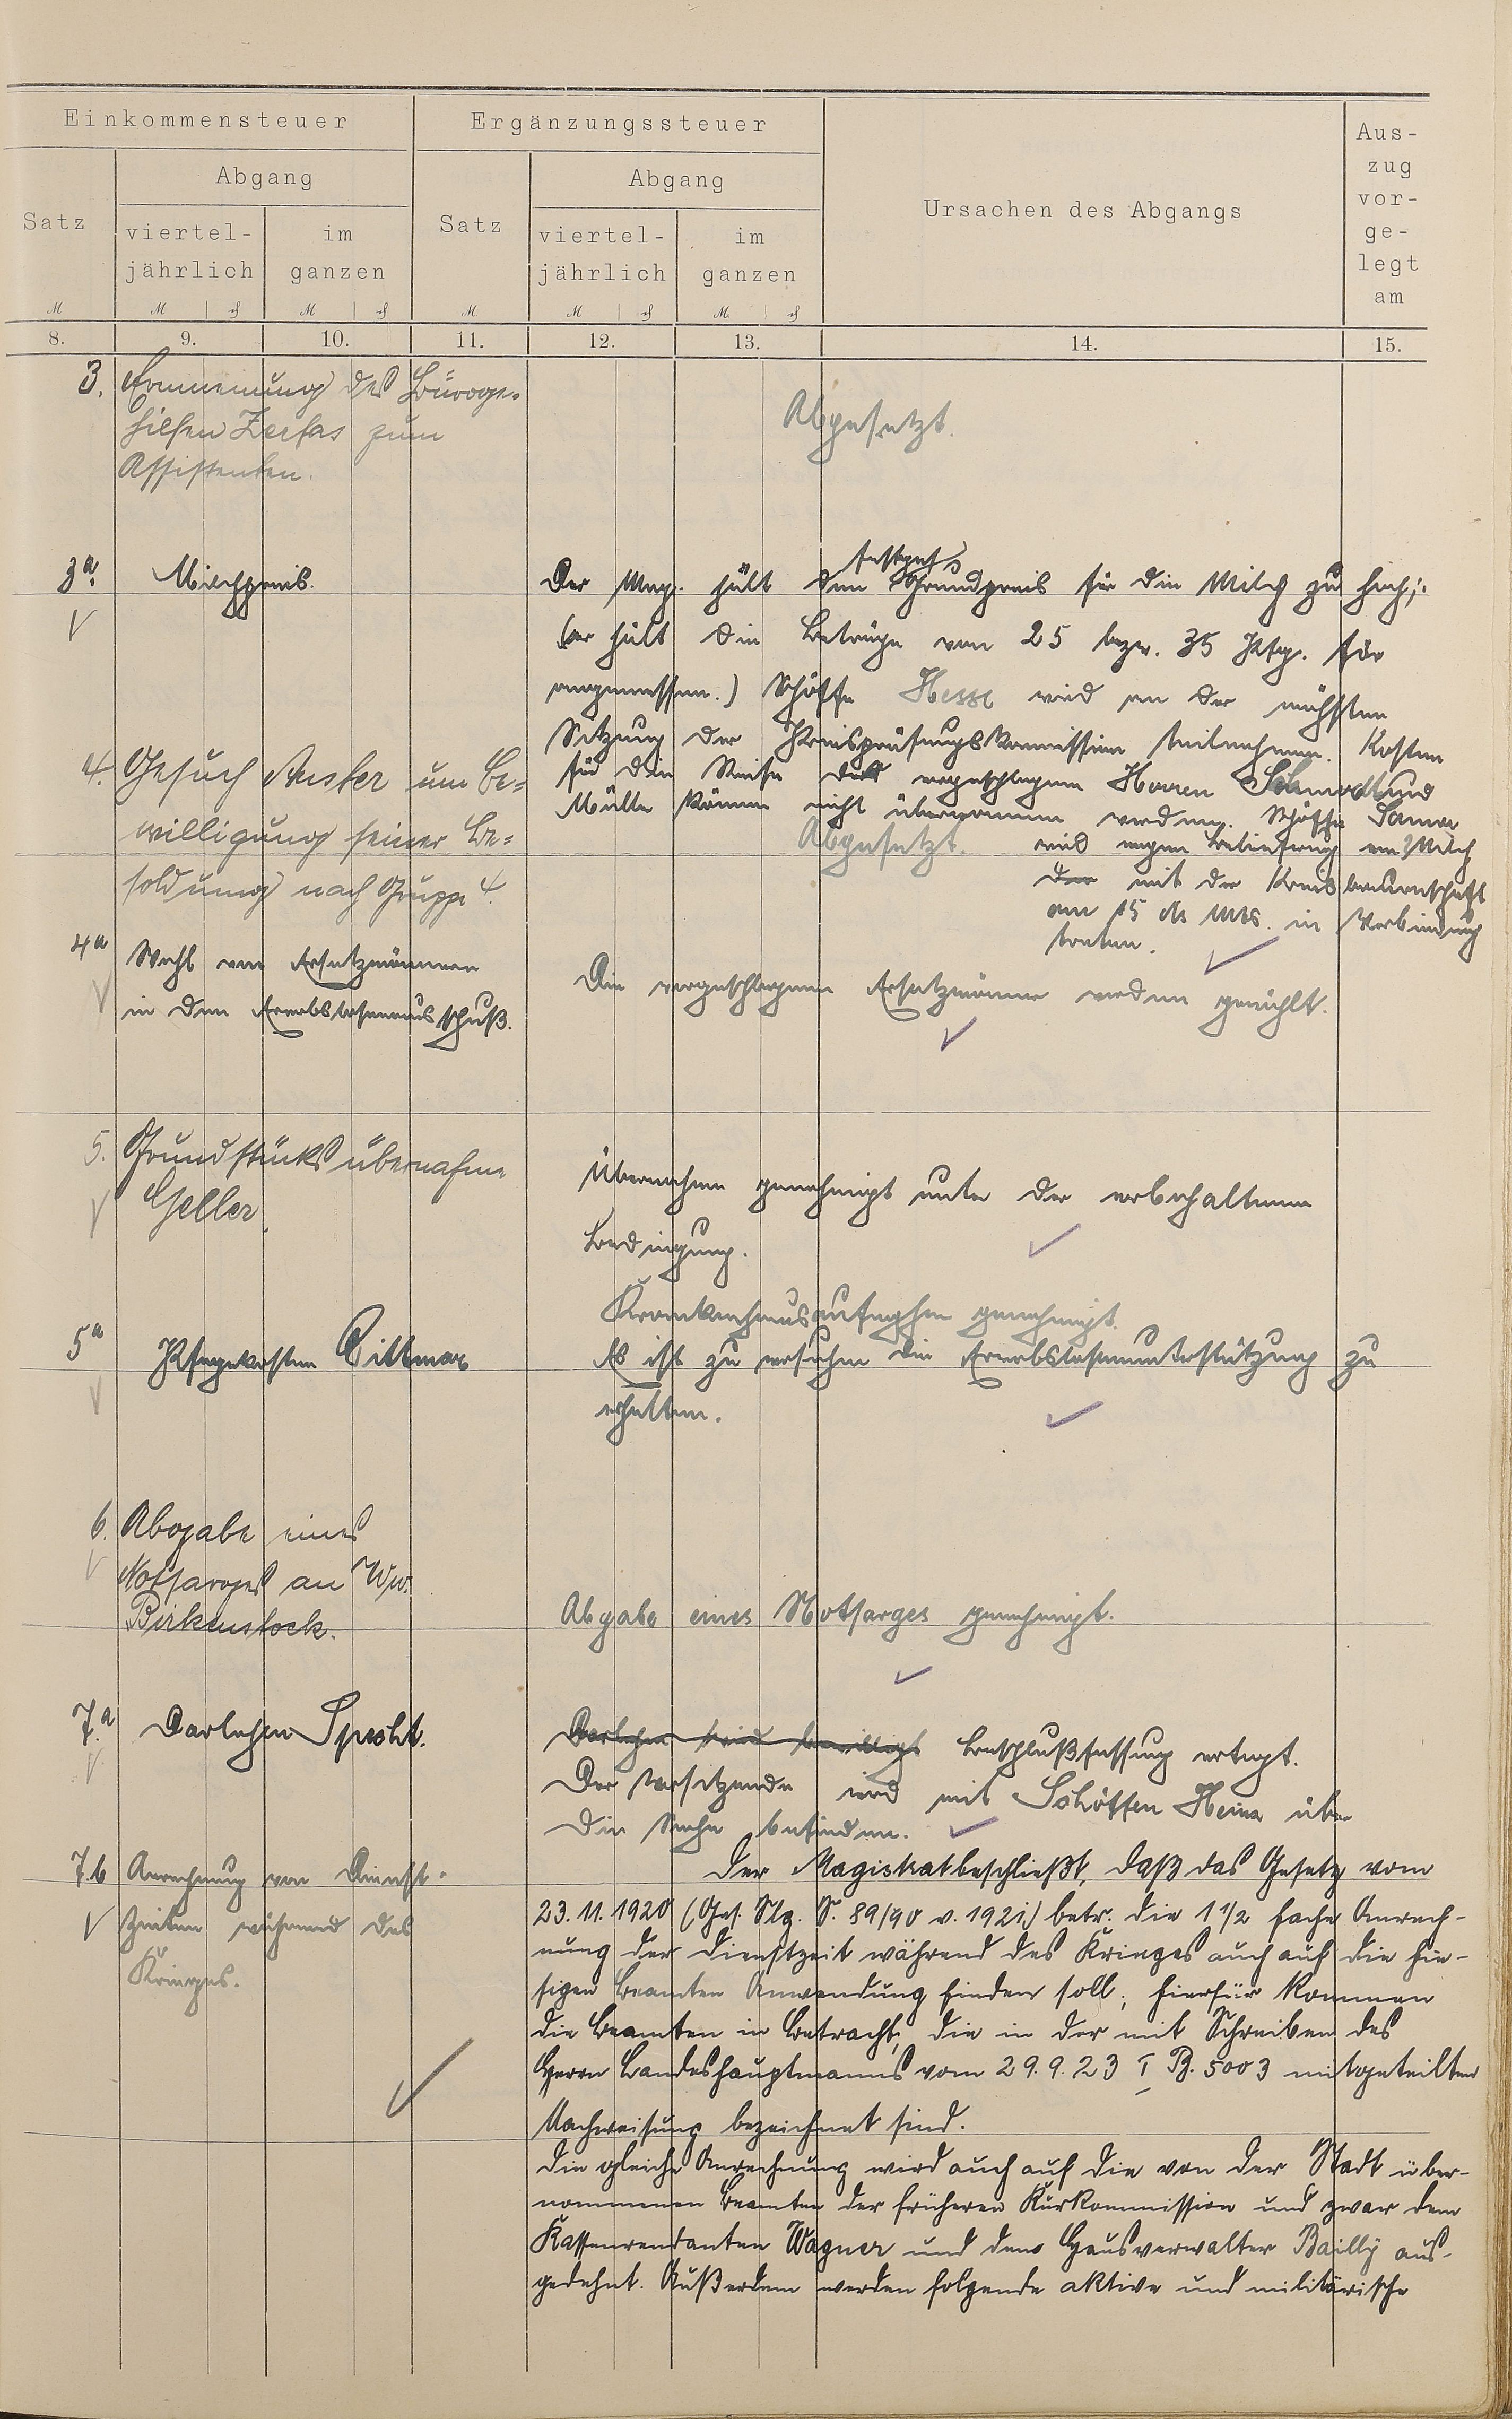 Einkommensteuer
Ergänzungssteuer
Ursachen des Abgangs
Aus-
zug
vor-
ge-
legt
am
Satz
Abgang
viertel-
jährlich
im
ganzen
Satz
Abgang
viertel-
jährlich
im
ganzen
M M ₰ M ₰ M M ₰ M ₰
8. 9. 10. 11. 12. 13. 14. 15.
3. Ernennung des Büroge-
hilfen Zerfas zum
Assistenten.
Abgesetzt.
3a. Milchpreis.
festges.
Der Mag. hält den Grundpreis für die Milch zu hoch;
(er hält die Beträge von 25 bezw. 35 Pfg. für
angemessen.) Schöffe Hesse wird an der nächsten
Sitzung der Preisprüfungskommission teilnehmen. Kosten
für die Reise der vorgeschlagenen Herren Schmodt und
Müller können nicht übernommen werden. Schöffe
wird wegen Belieferung von Milch
der mit der Kreisbauernschaft
am 15 ds Mts. in Verbindung
treten.
4. Gesuch Anster um Be-
willigung seiner Be-
soldung nach Gruppe 4.
Abgesetzt.
4a Wahl von Ersatzmännern
in den Erwerbslosenausschuß.
Die vorgeschlagenen Ersatzmänner werden gewählt.
5. Grundstücksübernahme
Geller.
Übernahme genehmigt unter der vorbehaltenen
Bedingung.
5a Pflegekosten Dittmar
Krankenhausaufnahme genehmigt.
Es ist zu versuchen die Erwerbslosenunterstützung zu
erhalten.
6. Abgabe eines
Notsarges an Ww.
Birkenstock.
Abgabe eines Notsarges genehmigt.
7.a Darlehen Specht.
Darlehen wird bewilligt Beschlußfassung vertagt.
Der Vorsitzende wird mit Schöffen Heinz über
die Sache befinden.
7.b Anrechnung von Dienst-
zeiten während des
Krieges.
Der Magistrat beschließt, daß das Gesetz vom
23.11.1920 (Ges. Slg. S. 89/90 v. 1921) betr. die 1 1/2 fache Anrech-
nung der Dienstzeit während des Krieges auch auf die hie-
sigen Beamten Anwendung finden soll; hierfür kommen
die Beamten in Betracht, die in der mit Schreiben des
Herrn Landeshauptmanns vom 29.9.23 I B. 5003 mitgeteilten
Nachweisung bezeichnet sind.
Die gleiche Anrechnung wird auch auf die von der Stadt über-
nommenen Beamten der früheren Kurkommission und zwar dem
Kassenrendanten Wagner und dem Hausverwalter Bailly aus-
gedehnt. Außerdem werden folgende aktive und militärische